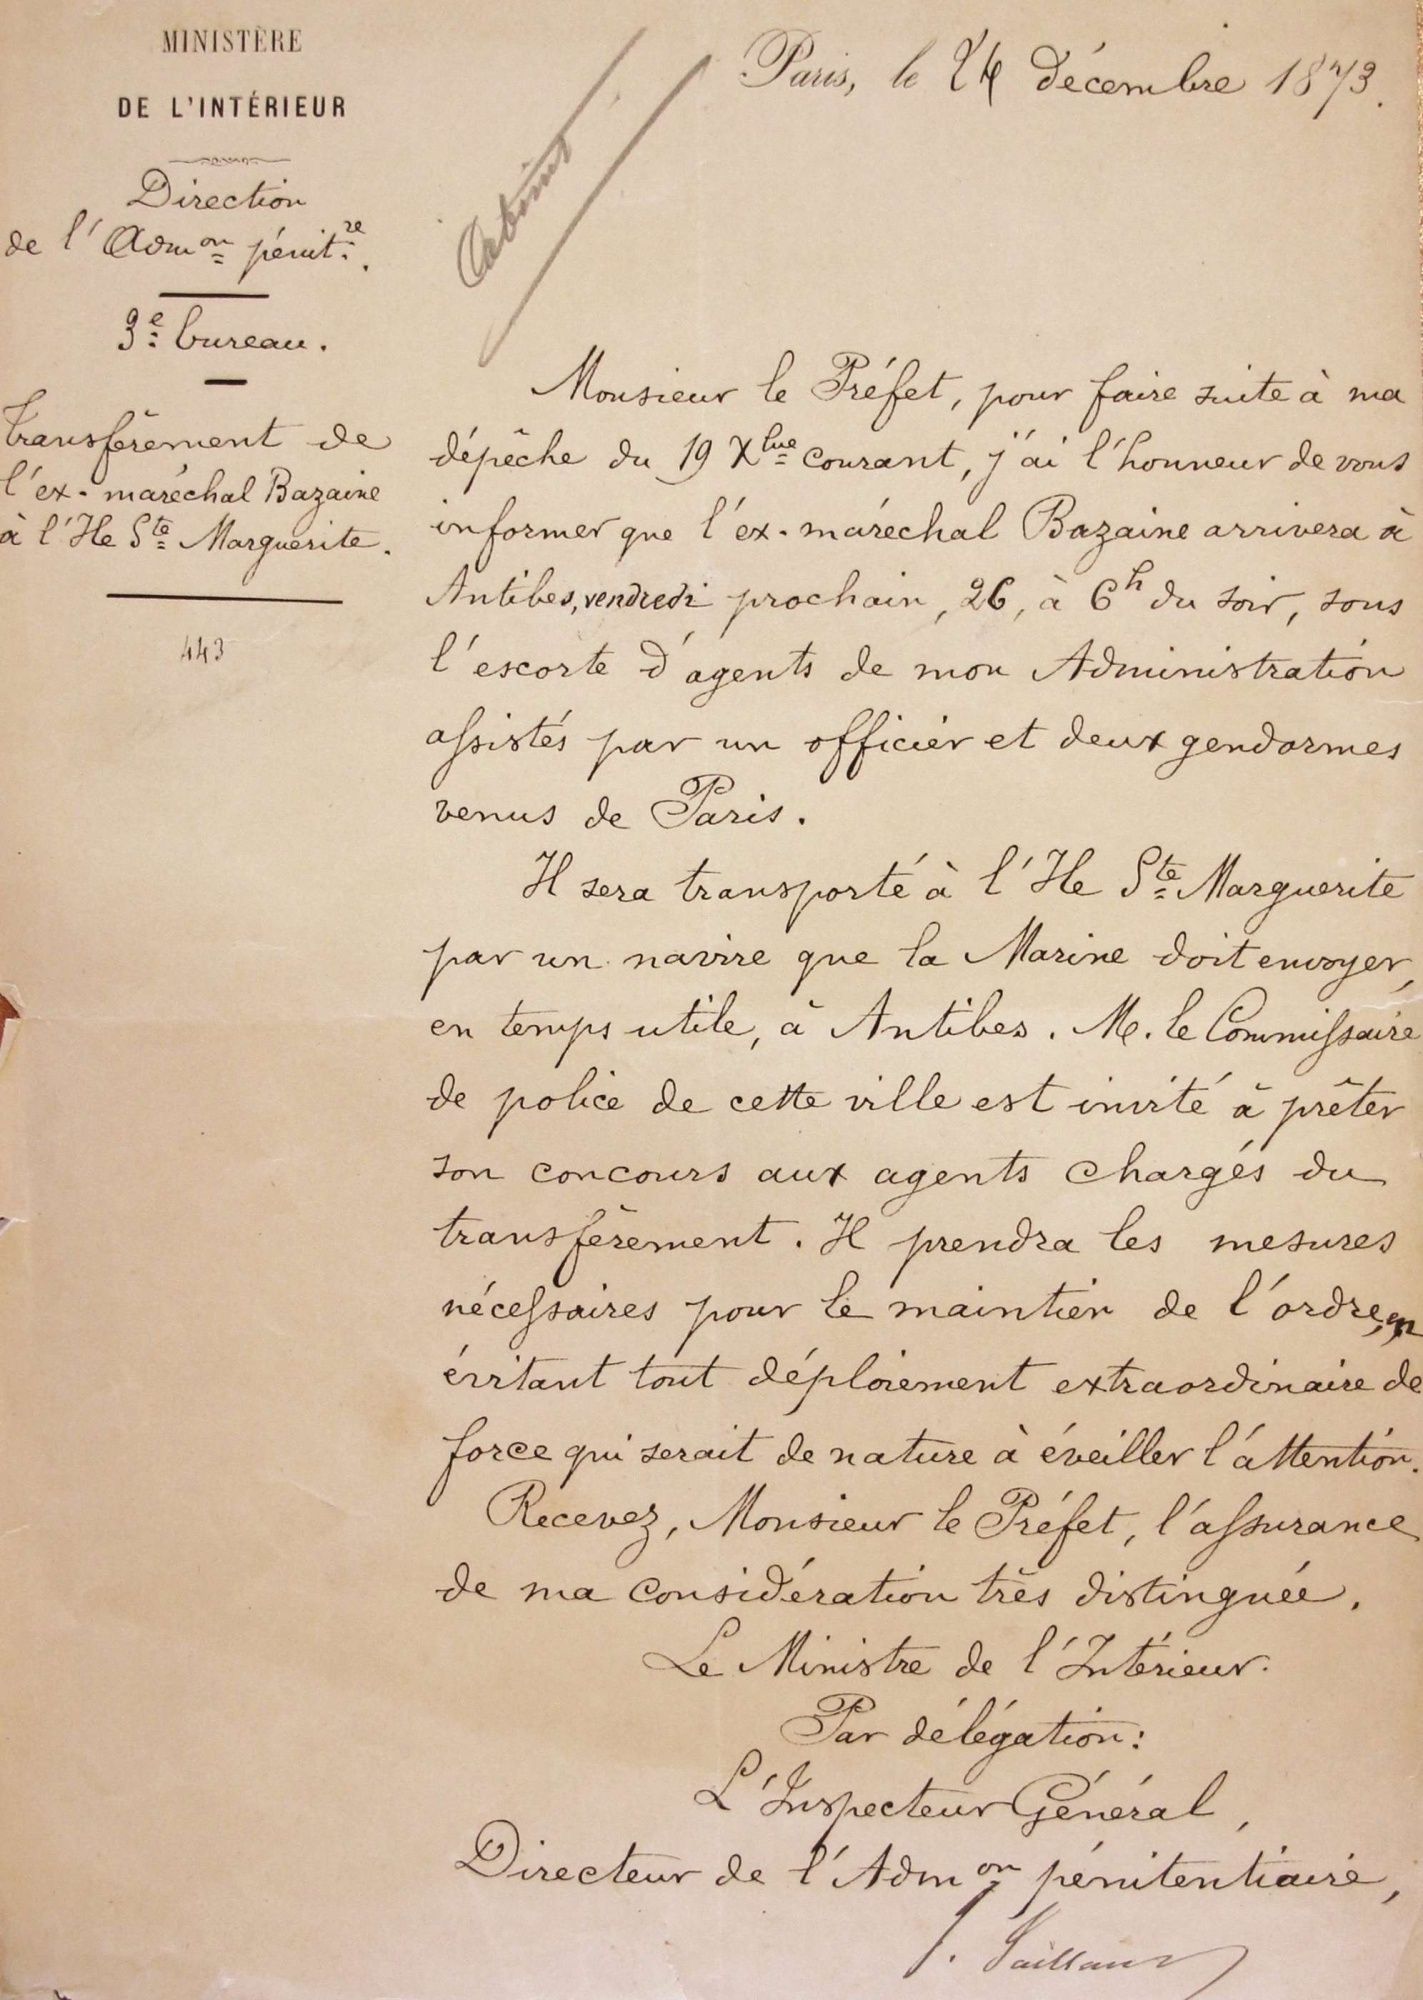 MINISTÈRE
DE L'INTÉRIEUR
Direction
de l'Admon pénitre.
3e bureau.
Transfèrement de
l'ex-maréchal Bazaine
à l'Ile Ste Marguerite.
443
Cabinet
Paris, le 24 décembre 1873.
Monsieur le Préfet, pour faire suite à ma
dépêche du 19 Xbre courant, j'ai l'honneur de vous
informer que l'ex-maréchal Bazaine arrivera à
Antibes, vendredi prochain, 26, à 6h du soir, sous
l'escorte d'agents de mon Administration
assistés par un officier et deux gendarmes
venus de Paris.
Il sera transporté à l'Ile Ste Marguerite
par un navire que la Marine doit envoyer,
en temps utile, à Antibes. M. le Commissaire
de police de cette ville est invité à prêter
son concours aux agents chargés du
transfèrement. Il prendra les mesures
nécessaires pour le maintien de l'ordre, en
évitant tout déploiement extraordinaire de
force qui serait de nature à éveiller l'attention.
Recevez, Monsieur le Préfet, l'assurance
de ma considération très distinguée.
Le Ministre de l'Intérieur.
Par délégation:
L'Inspecteur Général,
Directeur de l'Admon pénitentiaire,
J. Vaillant